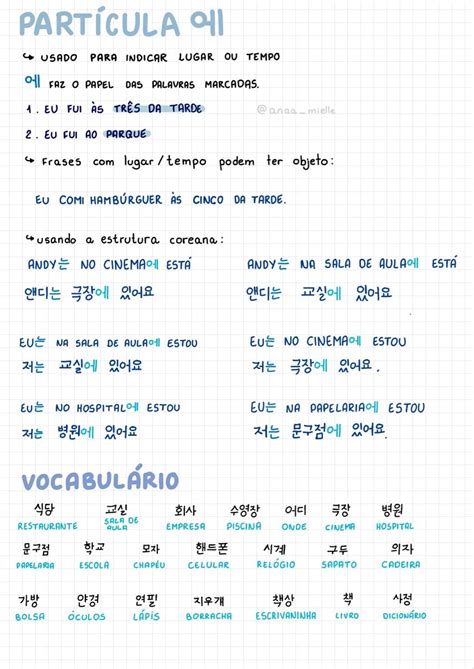 PARTÍCULA 에
↳ USADO PARA INDICAR LUGAR OU TEMPO
에 FAZ O PAPEL DAS PALAVRAS MARCADAS.
1. EU FUI ÀS TRÊS DA TARDE
@anaa_mielle
2. EU FUI AO PARQUE
↳ Frases com lugar/tempo podem ter objeto:
EU COMI HAMBÚRGUER ÀS CINCO DA TARDE.
↳ usando a estrutura coreana:
ANDY는 NO CINEMA에 ESTÁ
ANDY는 NA SALA DE AULA에 ESTÁ
앤디는 극장에 있어요
앤디는 교실에 있어요
EU는 NA SALA DE AULA에 ESTOU
EU는 NO CINEMA에 ESTOU
저는 교실에 있어요
저는 극장에 있어요.
EU는 NO HOSPITAL에 ESTOU
EU는 NA PAPELARIA에 ESTOU
저는 병원에 있어요
저는 문구점에 있어요.
VOCABULÁRIO
식당 교실 회사 수영장 어디 극장 병원
RESTAURANTE SALA DE AULA EMPRESA PISCINA ONDE CINEMA HOSPITAL
문구점 학교 모자 핸드폰 시계 구두 의자
PAPELARIA ESCOLA CHAPÉU CELULAR RELÓGIO SAPATO CADEIRA
가방 안경 연필 지우개 책상 책 사정
BOLSA ÓCULOS LÁPIS BORRACHA ESCRIVANINHA LIVRO DICIONÁRIO